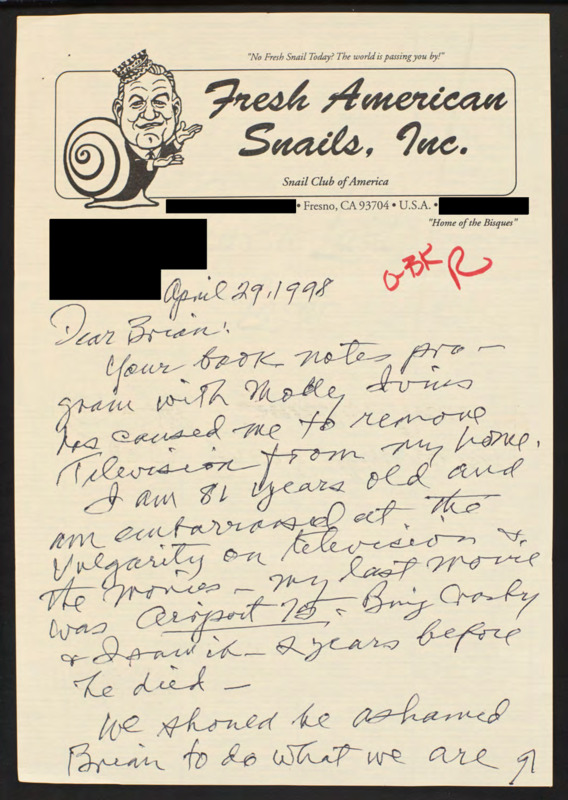 "No Fresh Snail Today? The world is passing you by!"
Fresh American
Snails, Inc.
Snail Club of America
• Fresno, CA 93704 • U.S.A. •
"Home of the Bisques"
April 29, 1998
Dear Brian:
Your book notes pro-
gram with Molly Ivins
has caused me to remove
Television from my home.
I am 81 years old and
am embarrassed at the
Vulgarity on television &
the movies - my last movie
was Airport 75. Bing Crosby
& I saw it - 2 years before
he died -
We should be ashamed
Brian to do what we are